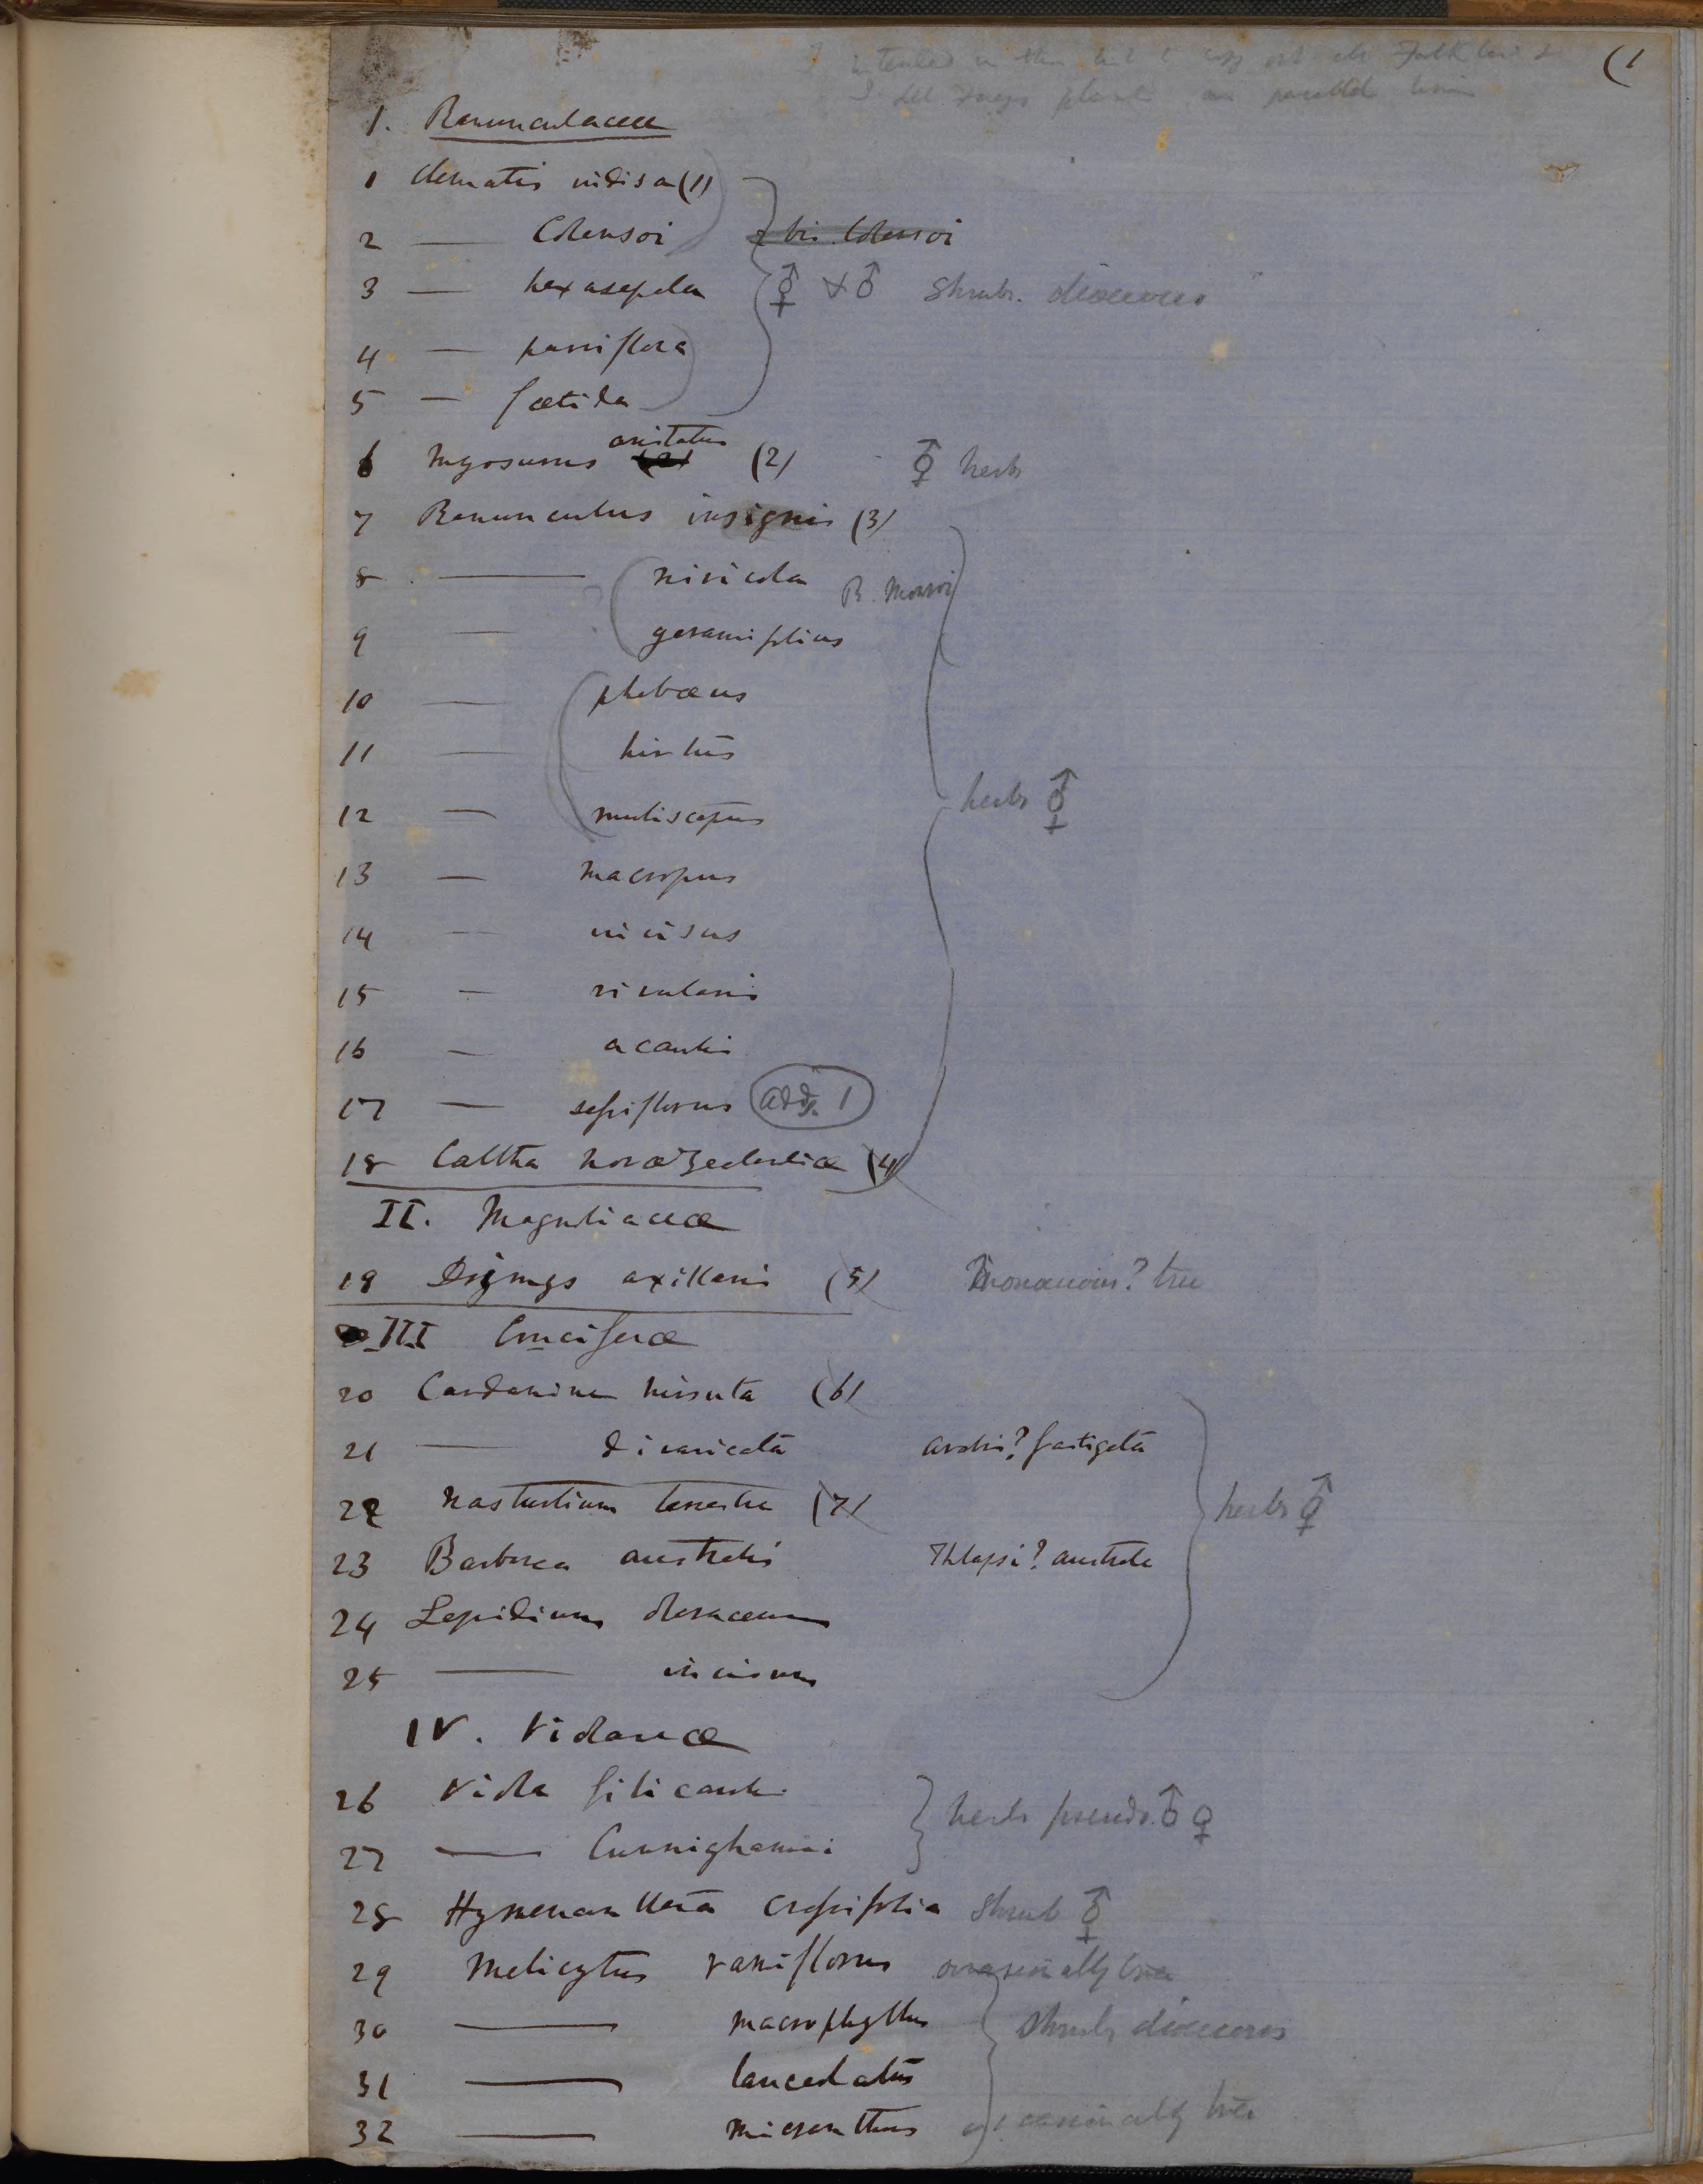 (1
I intended in this list to copy out all Falkland &
I. del Fuego plants in parallel lines
1. Ranunculaceæ
1 Clematis indivisa (1)
2 — Colensoi } bis. Colensoi
3 — hexasepala ⚥ & ♂ Shrubs. dioecious
4 — parviflora
5 — fœtida
6 Myosurus aristatus (2) ⚥ herb
7 Ranunculus insignis (3)
8 — nivicola R. Monroi
9 — geraniifolius
10 — plebæus
11 — hirtus
12 — multiscapus herbs ⚥
13 — macropus
14 — incisus
15 — rivularis
16 — acaulis
17 — sessiflorus add. 1
18 Caltha novæ Zelandiæ (4)
II. Magnoliaceæ
19 Drimys axillaris (5) monœcious? tree
III Cruciferæ
20 Cardamine hirsuta (6)
21 — divaricata Arabis? fastigata
22 Nasturtium terrestre (7) herbs ⚥
23 Barbarea australis Thlapsi? australe
24 Lepidium oleraceum
25 — incisum
IV. Violaceæ
26 Viola filicaulis } herbs pseudo. ♂ ♀
27 — Cunnighamii
28 Hymenanthera crassifolia Shrub ⚥
29 Melicytus ramiflorus occasionally tree
30 — macrophyllus } Shrubs dioecious
31 — lanceolatus
32 — micranthus occasionally tree